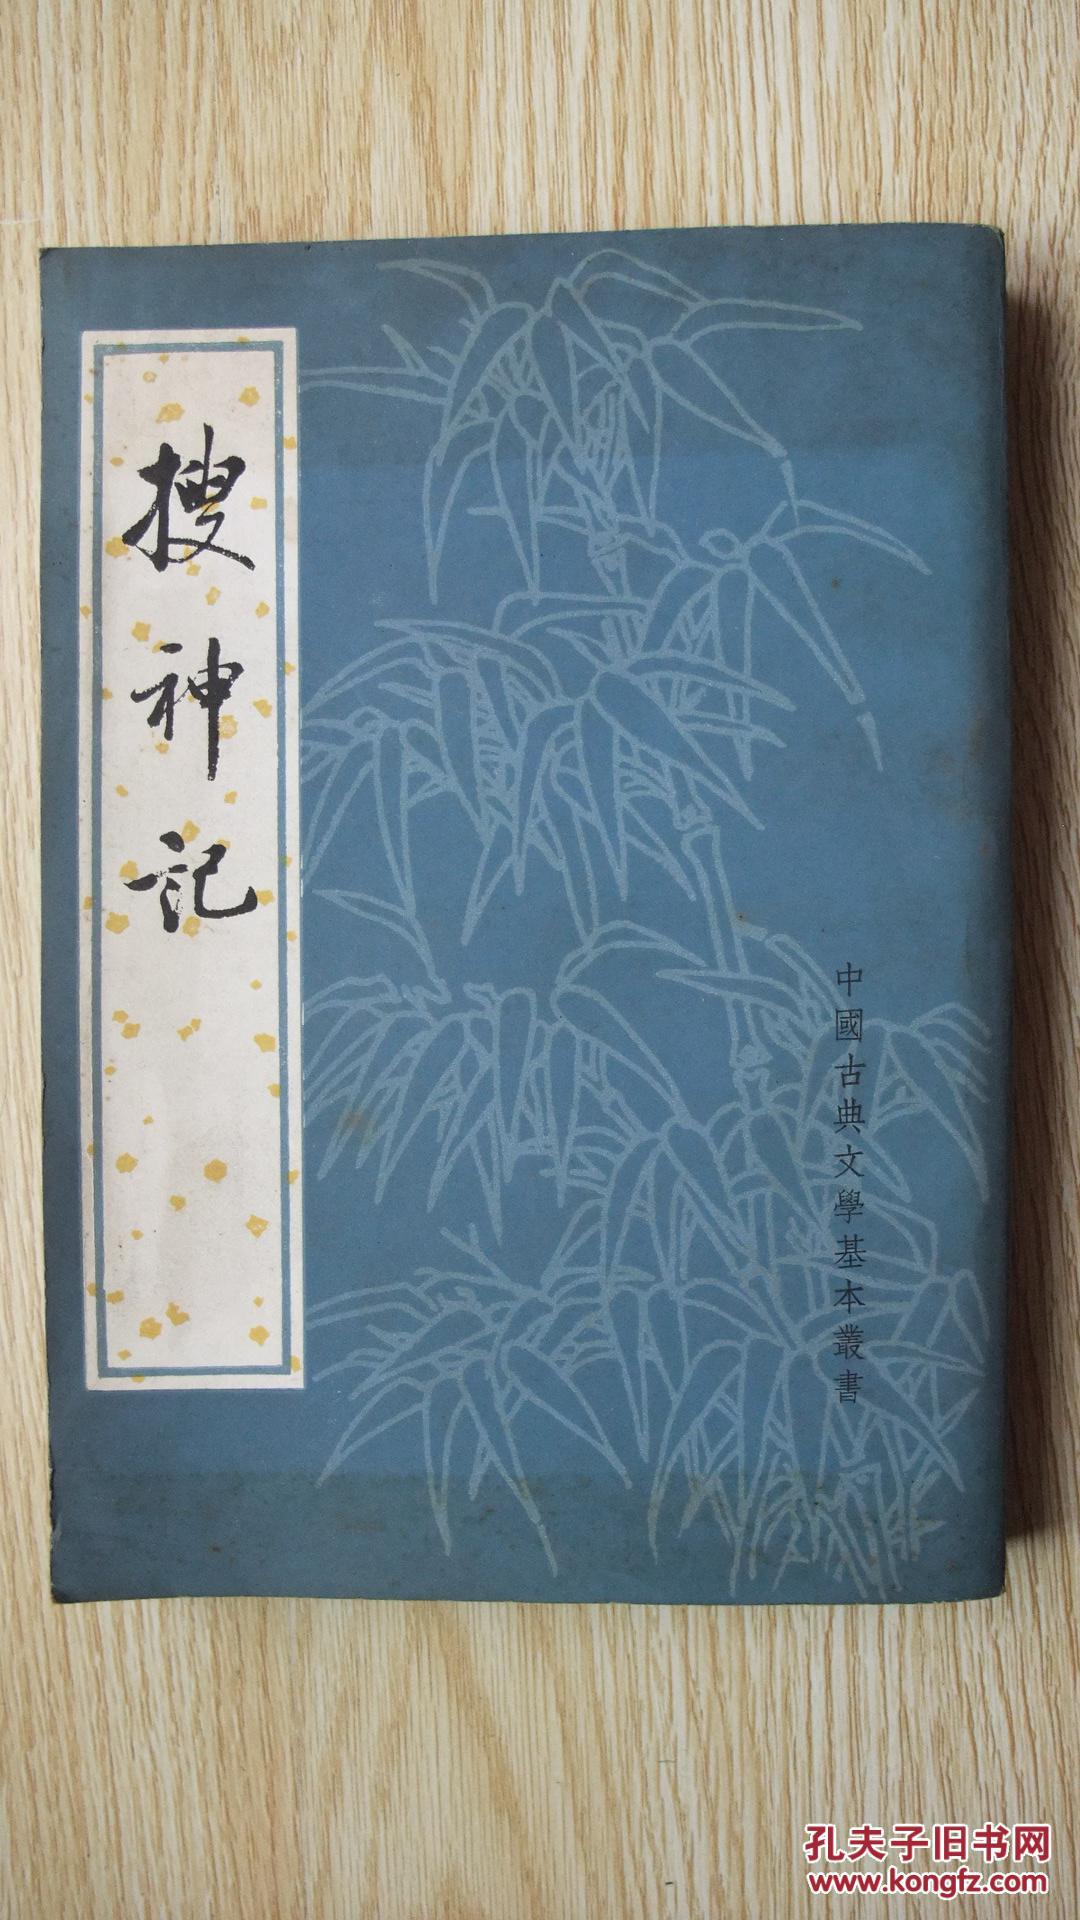 搜神記
中國古典文學基本叢書
孔夫子旧书网
www.kongfz.com